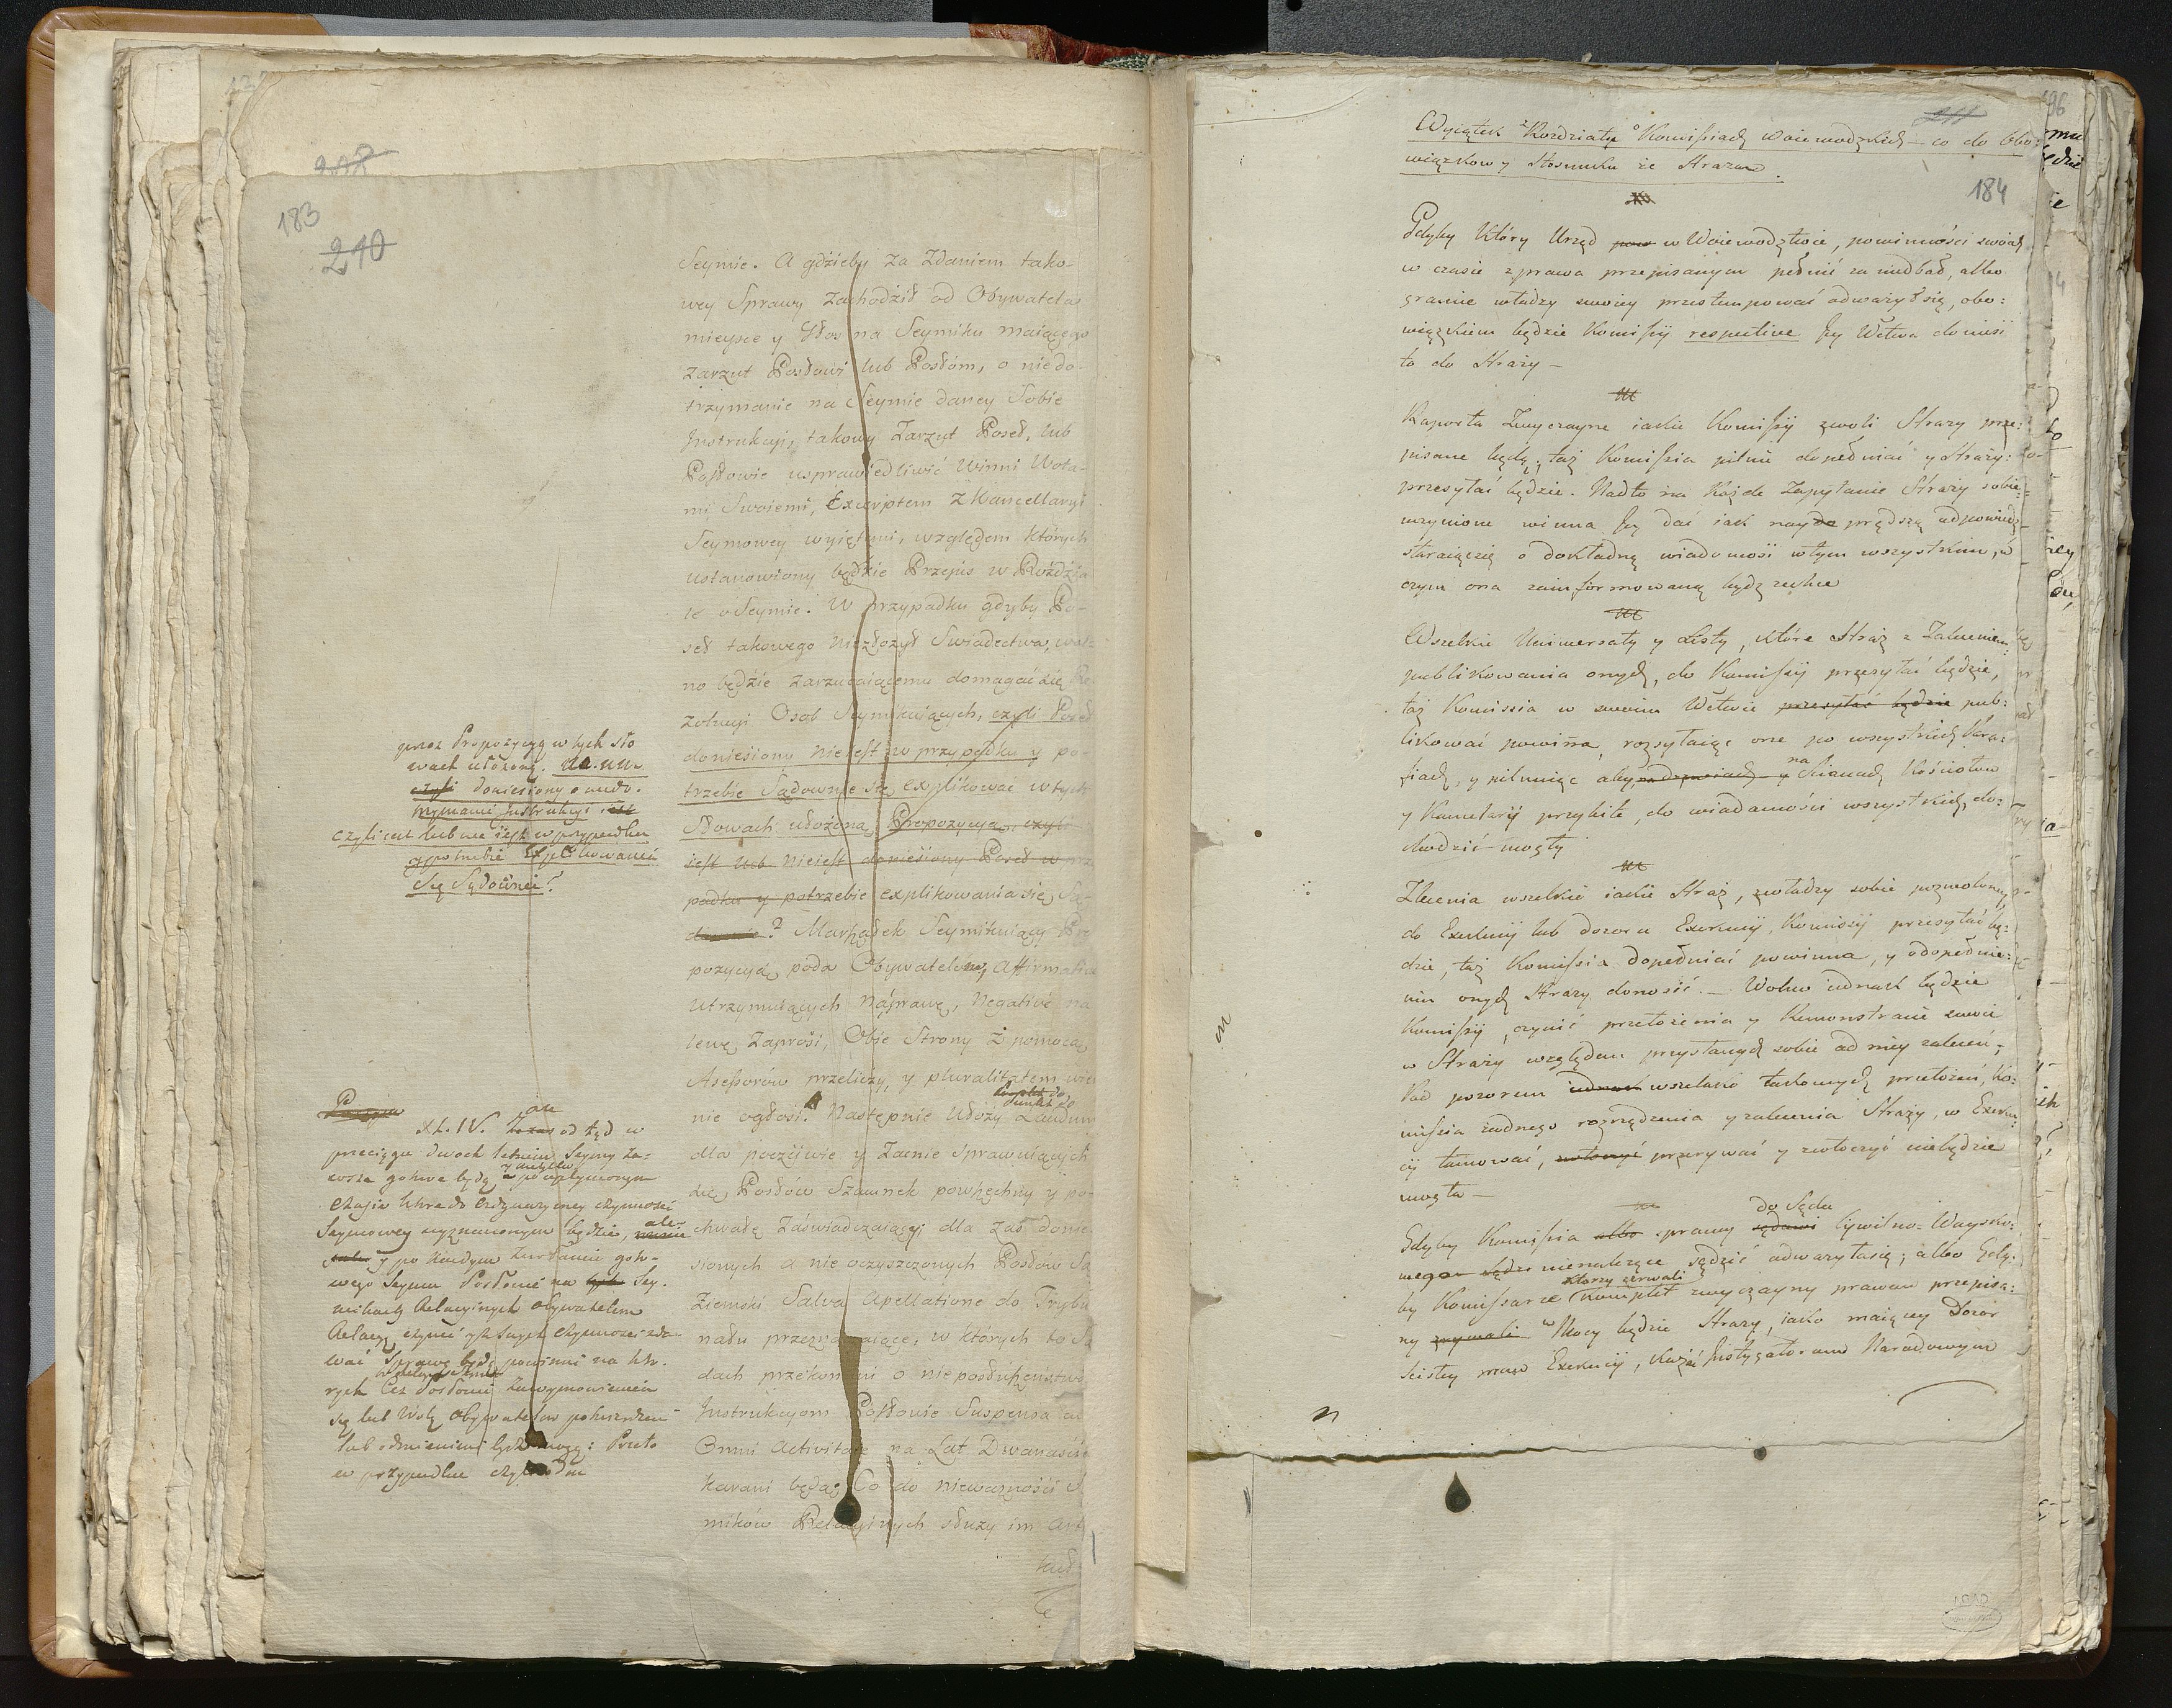 183
240
Seymie. A gdzieby za Zdaniem tako-
wey Sprawy Zachodził od Obywatela
mieysce y Głos na Seymiku maiącego
zarzut Posłowi lub Posłóm, o niedo-
trzymanie na Seymie daney Sobie
Instrukcyi, takowy Zarzut Poseł, lub
Posłowie usprawiedliwić Winni Wota-
mi Swoiemi, Excerptem z Kancellaryi
Seymowey wyiętemi, względem których
ustanowiony będzie Przepis w Rozdzia
le o Seymie. W przypadku gdyby Po-
seł takowego niezłożył Swiadectwa, wol-
no będzie zarzucaiącemu domagać się Re
zolucyi Osob Seymikuiących, czyli Poseł
doniesiony nieiest w przypadku y po-
trzebie Sądownie się explikować w tych
Słowach ułożoną Propozycyą, czyli
iest lub nieiest doniesiony Poseł w prz
padku y potrzebie explikowania się Są-
downie? Marszałek Seymikuiący Pro
pozycyą poda Obywatelów, Affirmative
utrzymuiących na prawę, Negativé na
lewę Zaprosi, Obie Strony z pomocą
Asessorów przeliczy, y pluralitatem
nie ogłosi. Następnie Ułoży Laudum
dla poczciwie y Zacnie Sprawuiących
się Posłów Szacunek powszechny y po-
chwałę Zaświadczaiący dla zaś donie
sionych a nie oczyszczonych Posłów Są
Ziemski Salva Apellatione do Trybu
nału przeznaczaiące, w których to Są
dach przekonani o nieposłuszeństwo
Instrukcyom Posłowie Suspensa ab
Omni Activitate na Lat Dwanaście
karani będą. Co do nieważności Sey
mików Relacyinych służy im Art
przez Propozycyą w tych sło
wach ułożoną.
czyli doniesiony o niedo-
trzymanie Instrukcyi
czyli iest lub nie iest w przypadku
y potrzebie explikowania
się Sądownei?
Art. IV. od tąd w
przeciągu dwóch letnim Seymy za-
wsze gotowe będą y po upłynionym
czasie który do ordynaryiney czynności
Seymowey wyznaczonym będzie, ale
y po każdym Zwołaniu goto-
wego Seymu Posłowie na Sey-
mikach Relacyinych obywatelom
Relacyą czynić y z Swych czynności zda-
wać Sprawę będą powinni na któ-
rych Ciż Posłowie za wymowieniem
się lub Wolą obywatelów potwierdzeni
lub odmienieni bydź mogą: Przeto
w przypadku
184
Wyiątek z Rozdziału o Komissiach Woiewodzkich – co do Obo:
wiązkow y Stosunku ze Strażą.
Gdyby Który Urząd pow w Woiewodztwie, powinności swoich
w czasie z prawa przepisanym pełnić zaniedbał, albo
granice władzy swoiey przestempować odważył się, obo:
wiązkiem będzie Komissyi respective Jey Wdztwa donieść
to do Straży –
Raporta Zwyczayne iakie Komissyi z woli Straży prze:
pisane będą, taż Komissia pilnie dopełniać y Straży:
przesyłać będzie. Nadto na Każde Zapytanie Straży sobie
uczynione winna Jey dać iak nayde prędszą odpowiedź
staraiąc się o dokładną wiadomość w tym wszystkim, o
czym ona zainformowaną bydź zechce
Wszelkie Uniwersały y Listy, które Straż z Zaleceniem
publikowania onych, do Komissyi przesyłać będzie,
taż Komissia w swoim Wdztwie przesyłać będzie pub:
likować powinna, rozsyłaiąc one po wszystkich Para:
fiach, y pilnuiąc aby na Scianach Kościołow
y Kancelaryi przybite, do wiadomości wszystkich do:
chodzić mogły
Zlecenia wszelkie iakie Straż, z władzy sobie pozwoloney
do Exekucyi lub dozoru Exekucyi, Komissyi przesyłać bę:
dzie, taż Komissia dopełniać powinna, y o dopełnie:
niu onych Straży donosić. – Wolno iednak będzie
Komissyi, czynić przełożenia y Remonstracie swoie
w Straży względem przysłanych sobie od niey zaleceń;
Pod pozorem iednak wszelako takowych przełożeń, Ko:
missia żadnego rozrządzenia y zalecenia Straży, w Exeku
cyi tamować, przerywać y zwłoczyć niebędzie
mogła –
do Sądu
Gdyby Komissia albo sprawy Cywilno-Woysko:
wego nienależące sądzić odważyła się; albo Gdy:
którzy zerwali
by Komissarze komplet zwyczayny prawem przepisa:
ny zrywali w Mocy będzie Straży, iako maiącey Dozor
scisły nad Exekucyi, kazać Instygatorom Narodowym